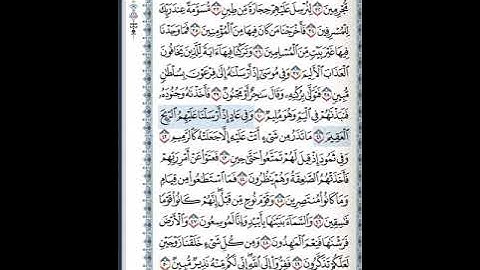 مُّجْرِمِينَ ٣٢ لِنُرْسِلَ عَلَيْهِمْ حِجَارَةً مِّن طِينٍ ٣٣ مُّسَوَّمَةً عِندَ رَبِّكَ
لِلْمُسْرِفِينَ ٣٤ فَأَخْرَجْنَا مَن كَانَ فِيهَا مِنَ الْمُؤْمِنِينَ ٣٥ فَمَا وَجَدْنَا
فِيهَا غَيْرَ بَيْتٍ مِّنَ الْمُسْلِمِينَ ٣٦ وَتَرَكْنَا فِيهَا آيَةً لِّلَّذِينَ يَخَافُونَ
الْعَذَابَ الْأَلِيمَ ٣٧ وَفِي مُوسَىٰ إِذْ أَرْسَلْنَاهُ إِلَىٰ فِرْعَوْنَ بِسُلْطَانٍ
مُّبِينٍ ٣٨ فَتَوَلَّىٰ بِرُكْنِهِ وَقَالَ سَاحِرٌ أَوْ مَجْنُونٌ ٣٩ فَأَخَذْنَاهُ وَجُنُودَهُ
فَنَبَذْنَاهُمْ فِي الْيَمِّ وَهُوَ مُلِيمٌ ٤٠ وَفِي عَادٍ إِذْ أَرْسَلْنَا عَلَيْهِمُ الرِّيحَ
الْعَقِيمَ ٤١ مَا تَذَرُ مِن شَيْءٍ أَتَتْ عَلَيْهِ إِلَّا جَعَلَتْهُ كَالرَّمِيمِ ٤٢
وَفِي ثَمُودَ إِذْ قِيلَ لَهُمْ تَمَتَّعُوا حَتَّىٰ حِينٍ ٤٣ فَعَتَوْا عَنْ أَمْرِ رَبِّهِمْ
فَأَخَذَتْهُمُ الصَّاعِقَةُ وَهُمْ يَنظُرُونَ ٤٤ فَمَا اسْتَطَاعُوا مِن قِيَامٍ
وَمَا كَانُوا مُنتَصِرِينَ ٤٥ وَقَوْمَ نُوحٍ مِّن قَبْلُ إِنَّهُمْ كَانُوا قَوْمًا
فَاسِقِينَ ٤٦ وَالسَّمَاءَ بَنَيْنَاهَا بِأَيْيدٍ وَإِنَّا لَمُوسِعُونَ ٤٧ وَالْأَرْضَ
فَرَشْنَاهَا فَنِعْمَ الْمَاهِدُونَ ٤٨ وَمِن كُلِّ شَيْءٍ خَلَقْنَا زَوْجَيْنِ
لَعَلَّكُمْ تَذَكَّرُونَ ٤٩ فَفِرُّوا إِلَى اللَّهِ إِنِّي لَكُم مِّنْهُ نَذِيرٌ مُّبِينٌ ٥٠